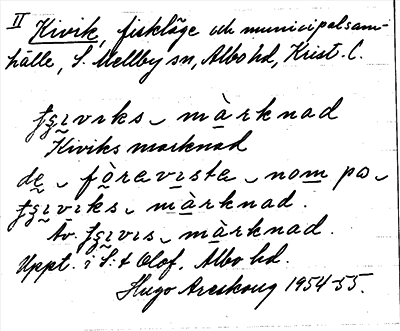 II Kivik, fiskläge och municipalsam-
hälle, S. Mellby sn, Albo hd, Krist. l.
ʈʂɪvɪks ̮ màrknad
Kiviks marknad
de ̮ fòravɪsta ̮ nom pɔ ̮
ʈʂɪvɪks ̮ màrknad.
Av. ʈʂɪvɪs ̮ màrknad.
Uppt. i S:t Olof, Albo hd.
Hugo Areskoug 1954-55.